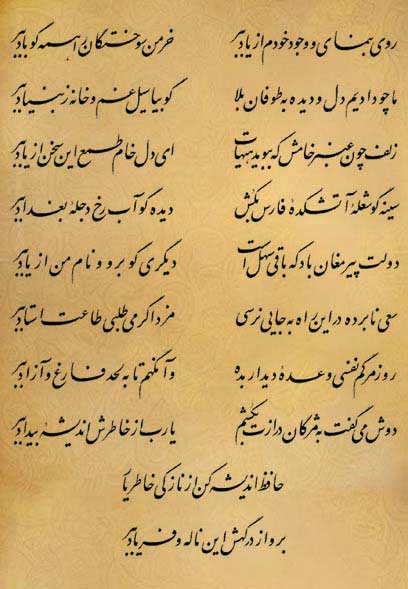 روی بنمای و وجود خودم از یاد ببر خرمن سوختگان را همه گو باد ببر
ما چو دادیم دل و دیده به طوفان بلا گو بیا سیل غم و خانه ز بنیاد ببر
زلف چون عنبر خامش که ببوید هیهات ای دل خام طمع این سخن از یاد ببر
سینه گو شعلهٔ آتشکدهٔ فارس بکش دیده گو آب رخ دجلهٔ بغداد ببر
دولت پیر مغان باد که باقی سهل است دیگری گو برو و نام من از یاد ببر
سعی نابرده در این راه به جایی نرسی مزد اگر می طلبی طاعت استاد ببر
روز مرگم نفسی وعدهٔ دیدار بده وآنگهم تا به لحد فارغ و آزاد ببر
دوش می گفت به مژگان درازت بکشم یارب از خاطرش اندیشهٔ بیداد ببر
حافظ اندیشه کن از نازکی خاطر یار
برو از درگهش این ناله و فریاد ببر